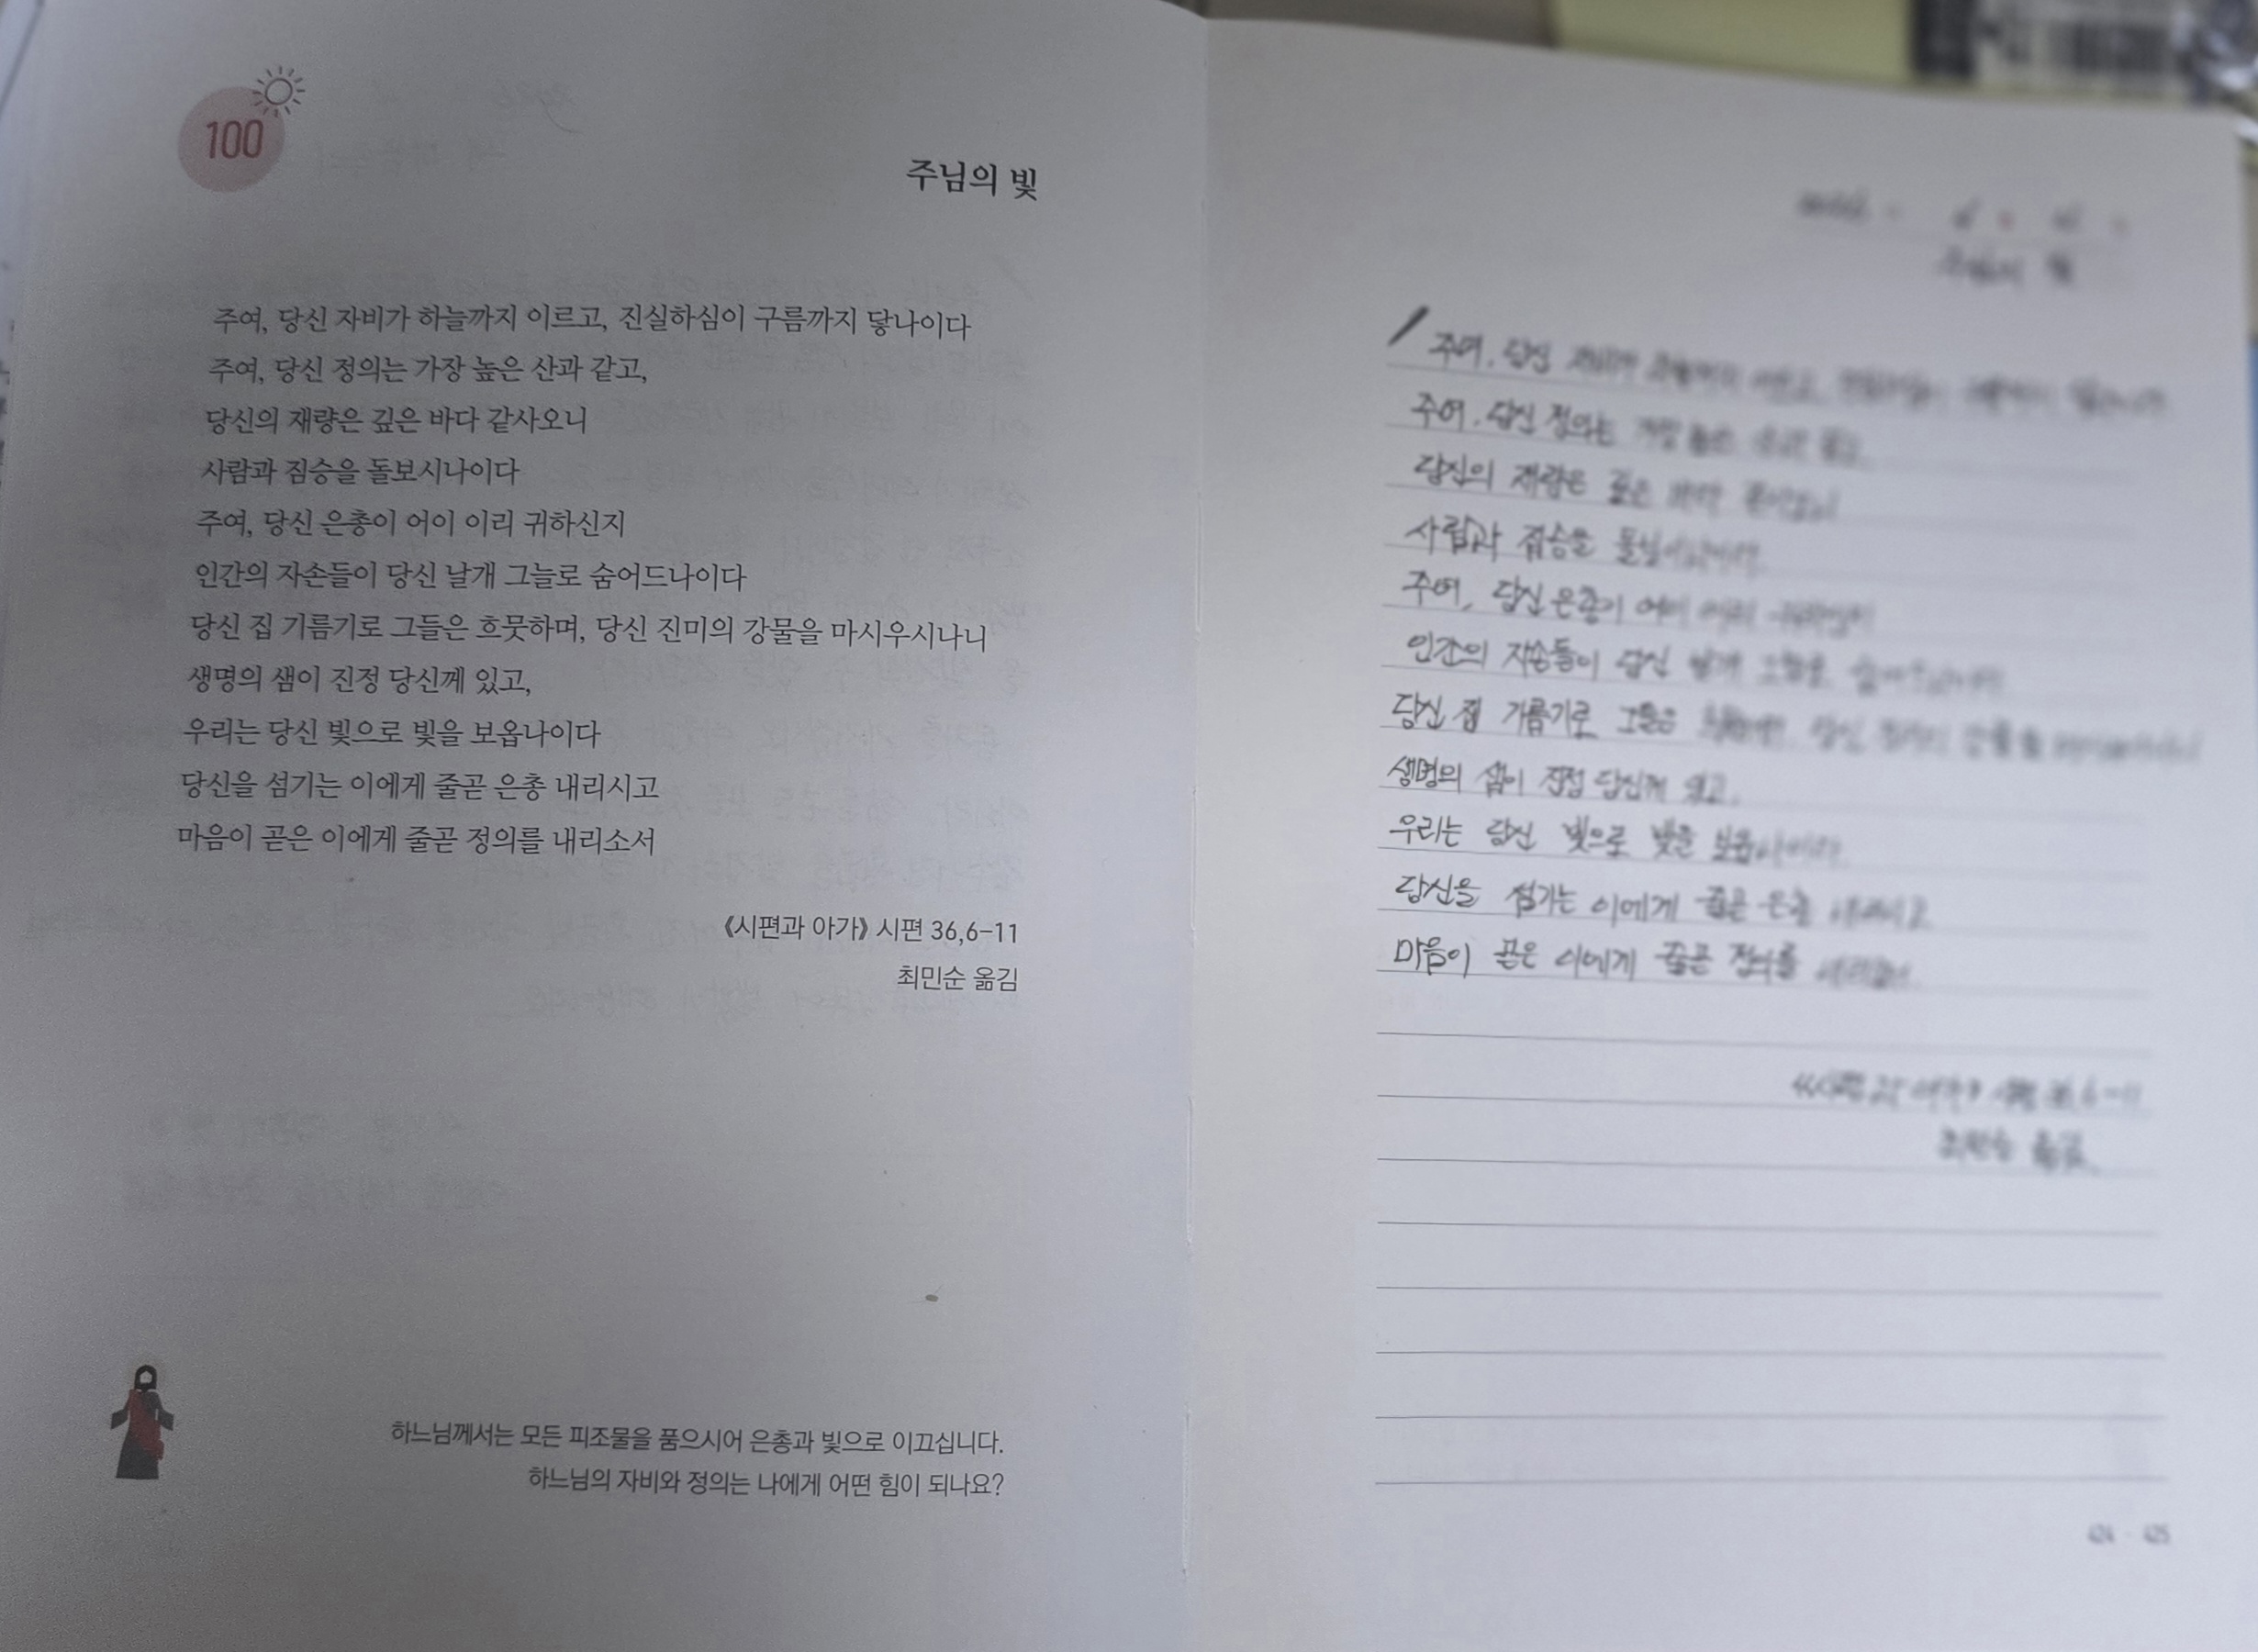 100
주님의 빛
주여, 당신 자비가 하늘까지 이르고, 진실하심이 구름까지 닿나이다
주여, 당신 정의는 가장 높은 산과 같고,
당신의 재량은 깊은 바다 같사오니
사람과 짐승을 돌보시나이다
주여, 당신 은총이 어이 이리 귀하신지
인간의 자손들이 당신 날개 그늘로 숨어드나이다
당신 집 기름기로 그들은 흐뭇하며, 당신 진미의 강물을 마시우시나니
생명의 샘이 진정 당신께 있고,
우리는 당신 빛으로 빛을 보옵나이다
당신을 섬기는 이에게 줄곧 은총 내리시고
마음이 곧은 이에게 줄곧 정의를 내리소서
《시편과 아가》 시편 36,6-11
최민순 옮김
하느님께서는 모든 피조물을 품으시어 은총과 빛으로 이끄십니다.
하느님의 자비와 정의는 나에게 어떤 힘이 되나요?
주여, 당신
주여, 당신 정의는 가장 높은
당신의 재량은 깊은
사람과 짐승을
주여, 당신 은총이 어이 이리
인간의 자손들이 당신 날개 그늘로
당신 집 기름기로 그들은
생명의 샘이 진정 당신께 있고,
우리는 당신 빛으로 빛을
당신을 섬기는 이에게 줄곧 은총
마음이 곧은 이에게 줄곧 정의를